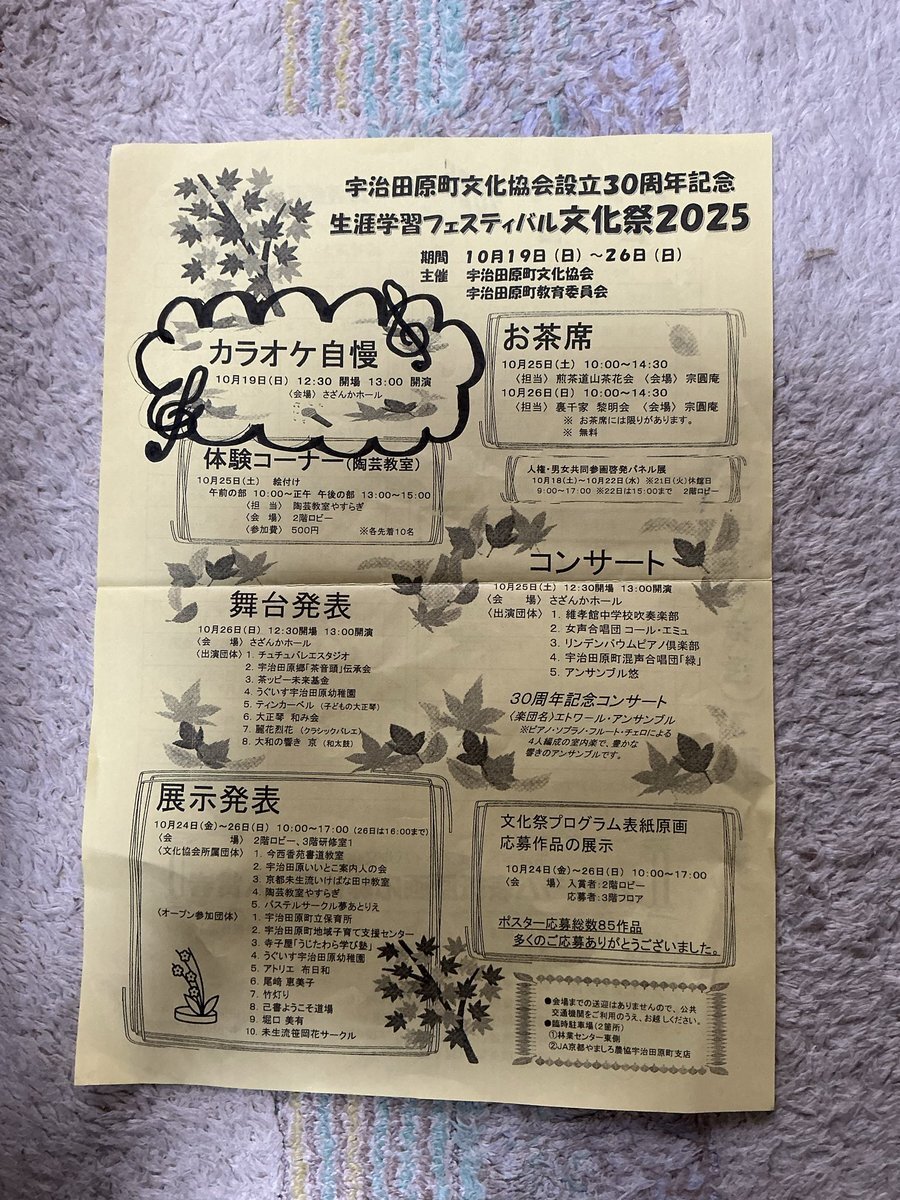 宇治田原町文化協会設立30周年記念
生涯学習フェスティバル文化祭2025
期間 10月19日(日)～26日(日)
主催 宇治田原町文化協会
宇治田原町教育委員会
カラオケ自慢
10月19日(日) 12:30 開場 13:00 開演
〈会場〉 さざんかホール
お茶席
10月25日(土) 10:00～14:30
〈担当〉 煎茶道山茶花会 〈会場〉 宗圓庵
10月26日(日) 10:00～14:30
〈担当〉 裏千家 黎明会 〈会場〉 宗圓庵
※ お茶席には限りがあります。
※ 無料
体験コーナー(陶芸教室)
10月25日(土) 絵付け
午前の部 10:00～正午 午後の部 13:00～15:00
〈担 当〉 陶芸教室やすらぎ
〈会 場〉 2階ロビー
〈参加費〉 500円 ※各先着10名
人権・男女共同参画啓発パネル展
10月18(土)～10月22(水) ※21日(火)休館日
9:00～17:00 ※22日は15:00まで 2階ロビー
コンサート
10月25日(土) 12:30開場 13:00開演
〈会 場〉 さざんかホール
〈出演団体〉 1. 維孝館中学校吹奏楽部
2. 女声合唱団 コール・エミュ
3. リンデンバウムピアノ倶楽部
4. 宇治田原町混声合唱団「緑」
5. アンサンブル悠
30周年記念コンサート
〈楽団名〉エトワール・アンサンブル
※ピアノ・ソプラノ・フルート・チェロによる
4人編成の室内楽で、豊かな
響きのアンサンブルです。
舞台発表
10月26日(日) 12:30開場 13:00開演
〈会 場〉 さざんかホール
〈出演団体〉 1. チュチュバレエスタジオ
2. 宇治田原郷「茶音頭」伝承会
3. 茶ッピー未来基金
4. うぐいす宇治田原幼稚園
5. ティンカーベル (子どもの大正琴)
6. 大正琴 和み会
7. 麗花烈花 (クラシックバレエ)
8. 大和の響き 京 (和太鼓)
展示発表
10月24日(金)～26日(日) 10:00～17:00 (26日は16:00まで)
〈会 場〉 2階ロビー、3階研修室1
〈文化協会所属団体〉 1. 今西香苑書道教室
2. 宇治田原いいとこ案内人の会
3. 京都未生流いけばな田中教室
4. 陶芸教室やすらぎ
5. パステルサークル夢あとりえ
〈オープン参加団体〉 1. 宇治田原町立保育所
2. 宇治田原町地域子育て支援センター
3. 寺子屋「うじたわら学び塾」
4. うぐいす宇治田原幼稚園
5. アトリエ 布日和
6. 尾崎 恵美子
7. 竹灯り
8. 己書ようこそ道場
9. 堀口 美有
10. 未生流笹岡花サークル
文化祭プログラム表紙原画
応募作品の展示
10月24日(金)～26日(日) 10:00～17:00
〈会 場〉 入賞者:2階ロビー
応募者:3階フロア
ポスター応募総数85作品
多くのご応募ありがとうございました。
●会場までの送迎はありませんので、公共
交通機関をご利用のうえ、お越しください。
●臨時駐車場(2箇所)
①林業センター東側
②JA京都やましろ農協宇治田原町支店